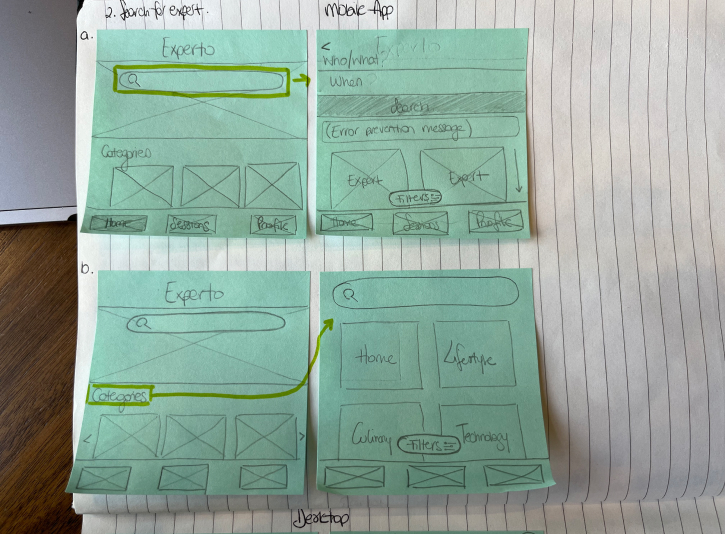 2. Search for expert.
Mobile App
a.
Experto
Categories
Home
Sessions
Profile
<
Experto
Who/What
When
Search
(Error prevention message)
Expert
Expert
Filters
Home
Sessions
Profile
b.
Experto
Categories
<
>
Home
Lifestyle
Culinary
Technology
Filters
Desktop